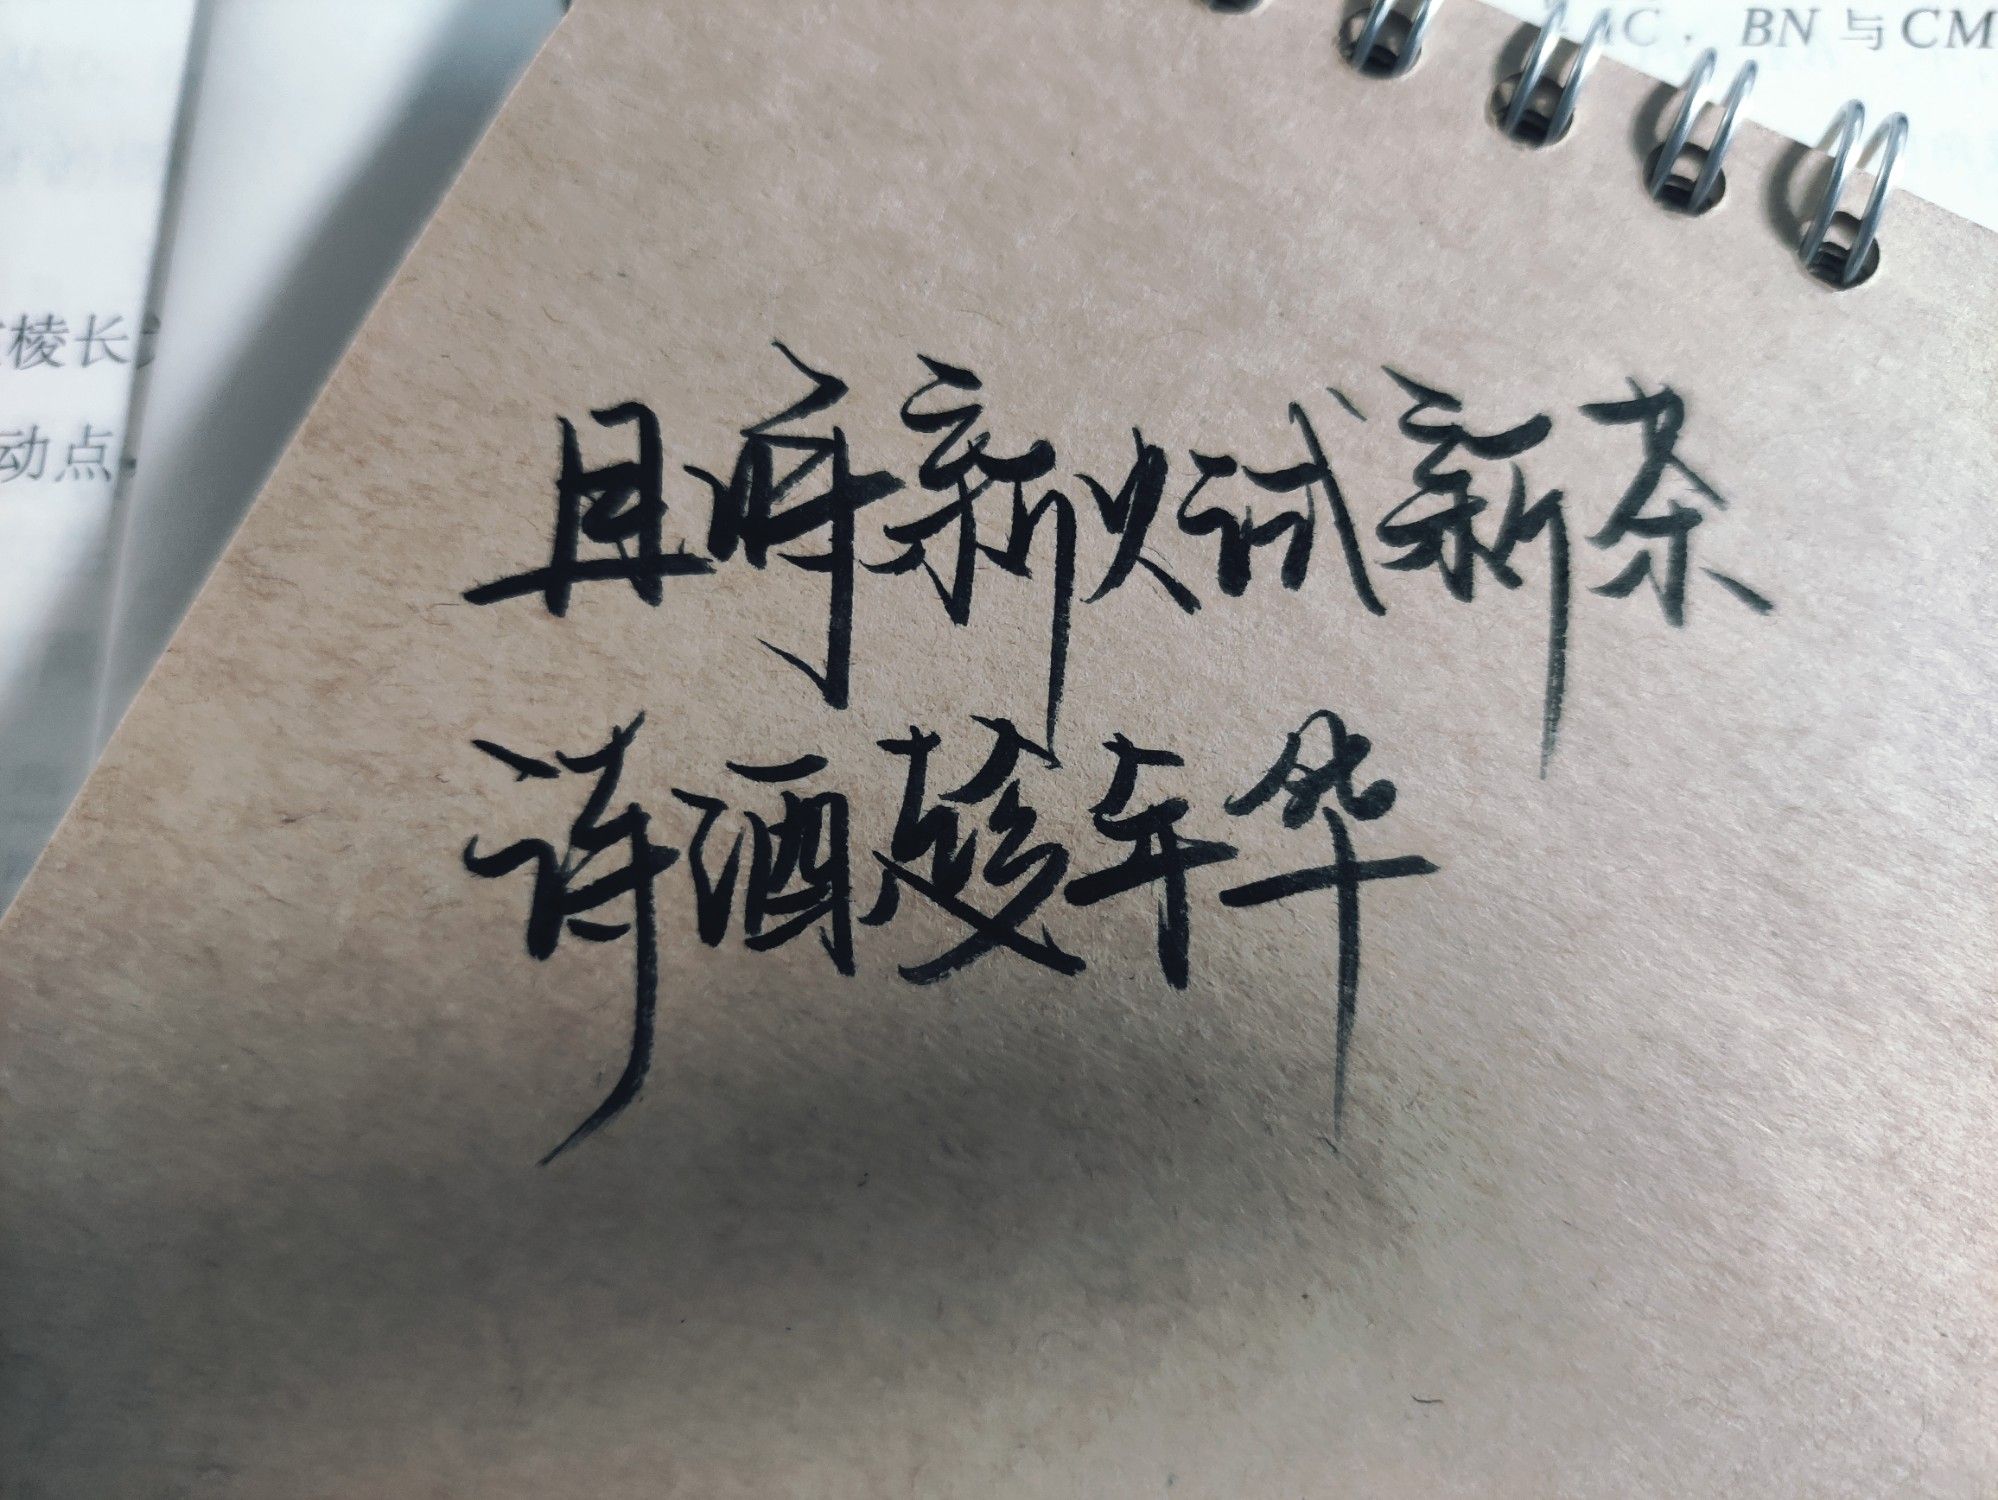 MC，BN与CM
棱长
动点
且将新火试新茶
诗酒趁年华